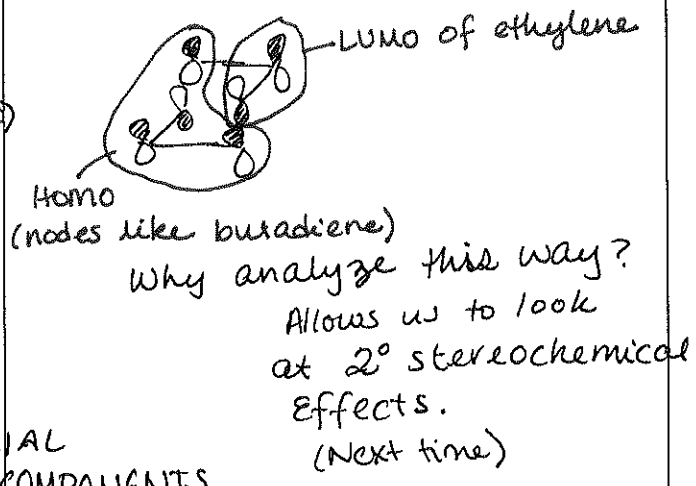 LUMO of ethylene
Homo
(nodes like butadiene)
Why analyze this way?
Allows us to look
at 2° stereochemical
Effects.
(Next time)
IAL
COMPONENTS